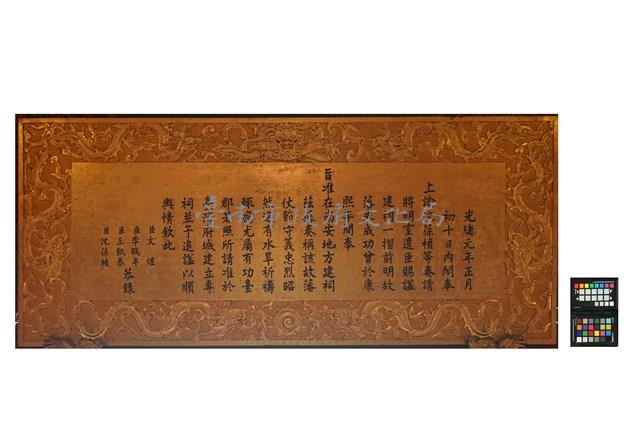 光緒元年正月
初十日內閣奉
上諭沈葆楨等奏請
將明室遺臣賜諡
建祠一摺前明故
藩鄭成功曾於康
熙年間奉
旨准在南安地方建祠
奏稱該故藩
仗節守義忠烈昭
然遇有水旱祈禱
輒應尤屬有功臺
郡著照所請准於
臺灣府城建立專
祠並予追諡以順
輿情欽此
臣文煜
臣李鶴年
臣王凱泰
臣沈葆楨
恭錄
臺南市政府文化局